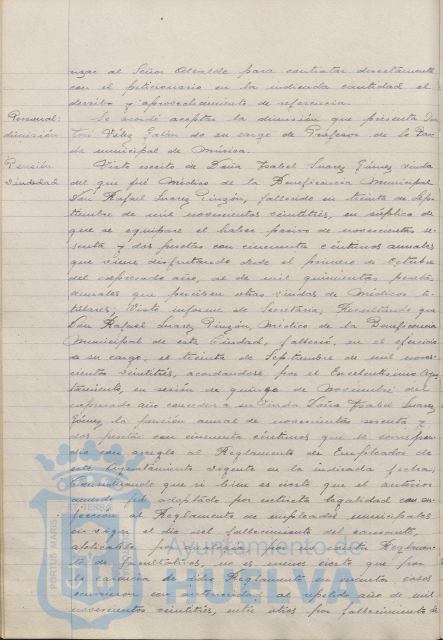 rizar al Señor Alcalde para contratar directamente
con el peticionario en la indicada cantidad el
derribo y aprovechamiento de referencia.
Personal:
dimisión
Se acordó aceptar la dimisión que presenta Don
José Vélez de su cargo de Profesor de la Ban-
da municipal de música.
Pensión
Viudedad
Visto escrito de Doña Isabel Suarez Gómez viuda
del que fué Médico de la Beneficencia Municipal
Don Rafael Suarez Pinzón, fallecido en treinta de Sep-
tiembre de mil novecientos veintitrés, en súplica de
que se equipare el haber pasivo de novecientas se-
senta y dos pesetas con cincuenta céntimos anuales
que viene disfrutando desde el primero de Octubre
del expresado año, al de mil quinientas pesetas
anuales que perciben otras viudas de Médicos ti-
tulares; Visto informe de Secretaría; Resultando que
Don Rafael Suarez Pinzón, Médico de la Beneficencia
Municipal de esta Ciudad, falleció, en el ejercicio
de su cargo, el treinta de Septiembre de mil nove-
cientos veintitrés, acordandose por el Excelentísimo Ayun-
tamiento, en sesión de quince de Noviembre del
expresado año conceder a su viuda Doña Isabel Suarez
Gómez la pensión anual de novecientas sesenta y
dos pesetas con cincuenta céntimos que le correspon-
día con arreglo al Reglamento de Empleados de
este Ayuntamiento vigente en la indicada fecha;
Considerando que si bien es cierto que el anterior
acuerdo fué adoptado por estricta legalidad con su-
jeción al Reglamento de empleados municipales
en vigor el día del fallecimiento del causante,
por no existir Reglamen-
to de Facultativos, no es menos cierto que por
la carencia de dicho Reglamento en cuantos casos
ocurrieron con anterioridad al repetido año de mil
novecientos veintitrés, entre otros por fallecimiento de
PORTUS MARIS
TERRAE
Ayuntamiento de
HUELVA